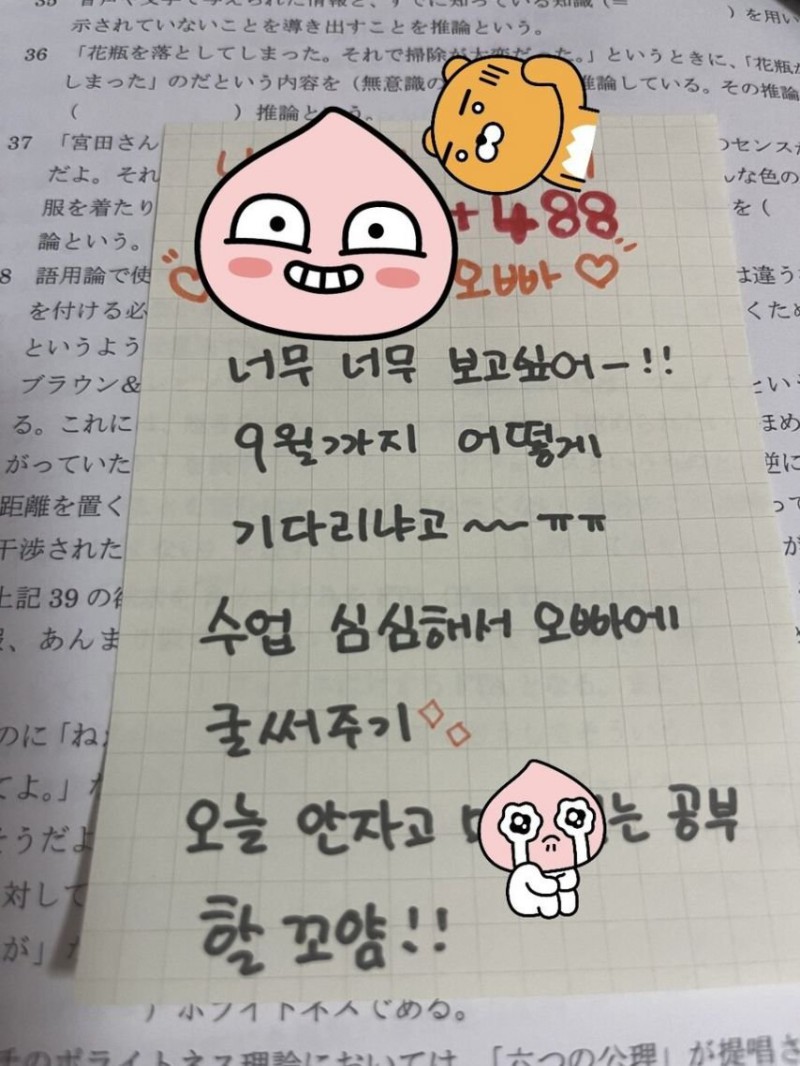 示されていないことを導き出すことを推論という。
36 「花瓶を落としてしまった。それで掃除が大変だった。」というときに、「花瓶が
しまった」のだという内容を（無意識の 推論している。その推論
（ ）推論という。
37 「宮田さん のセンスが
だよ。それ んな色の
服を着たり を（
論という。
+488
8 語用論で使 は違う
오빠
を付ける必 くため
というよう
너무 너무 보고싶어-!!
ブラウン& という
る。これに ほめ
9월까지 어떻게
がっていた 逆に
距離を置く って
기다리냐고 ~~ ㅠㅠ
干渉された が
上記 39 の
수업 심심해서 오빠에
、あんま
글써주기
のに「ね
てよ。」
오늘 안자고 는 공부
そうだよ
対して
할 꼬얌!!
が」
）ポライトネスじめる。
のポライトネス理論においては、「六つの公理」が提唱さ